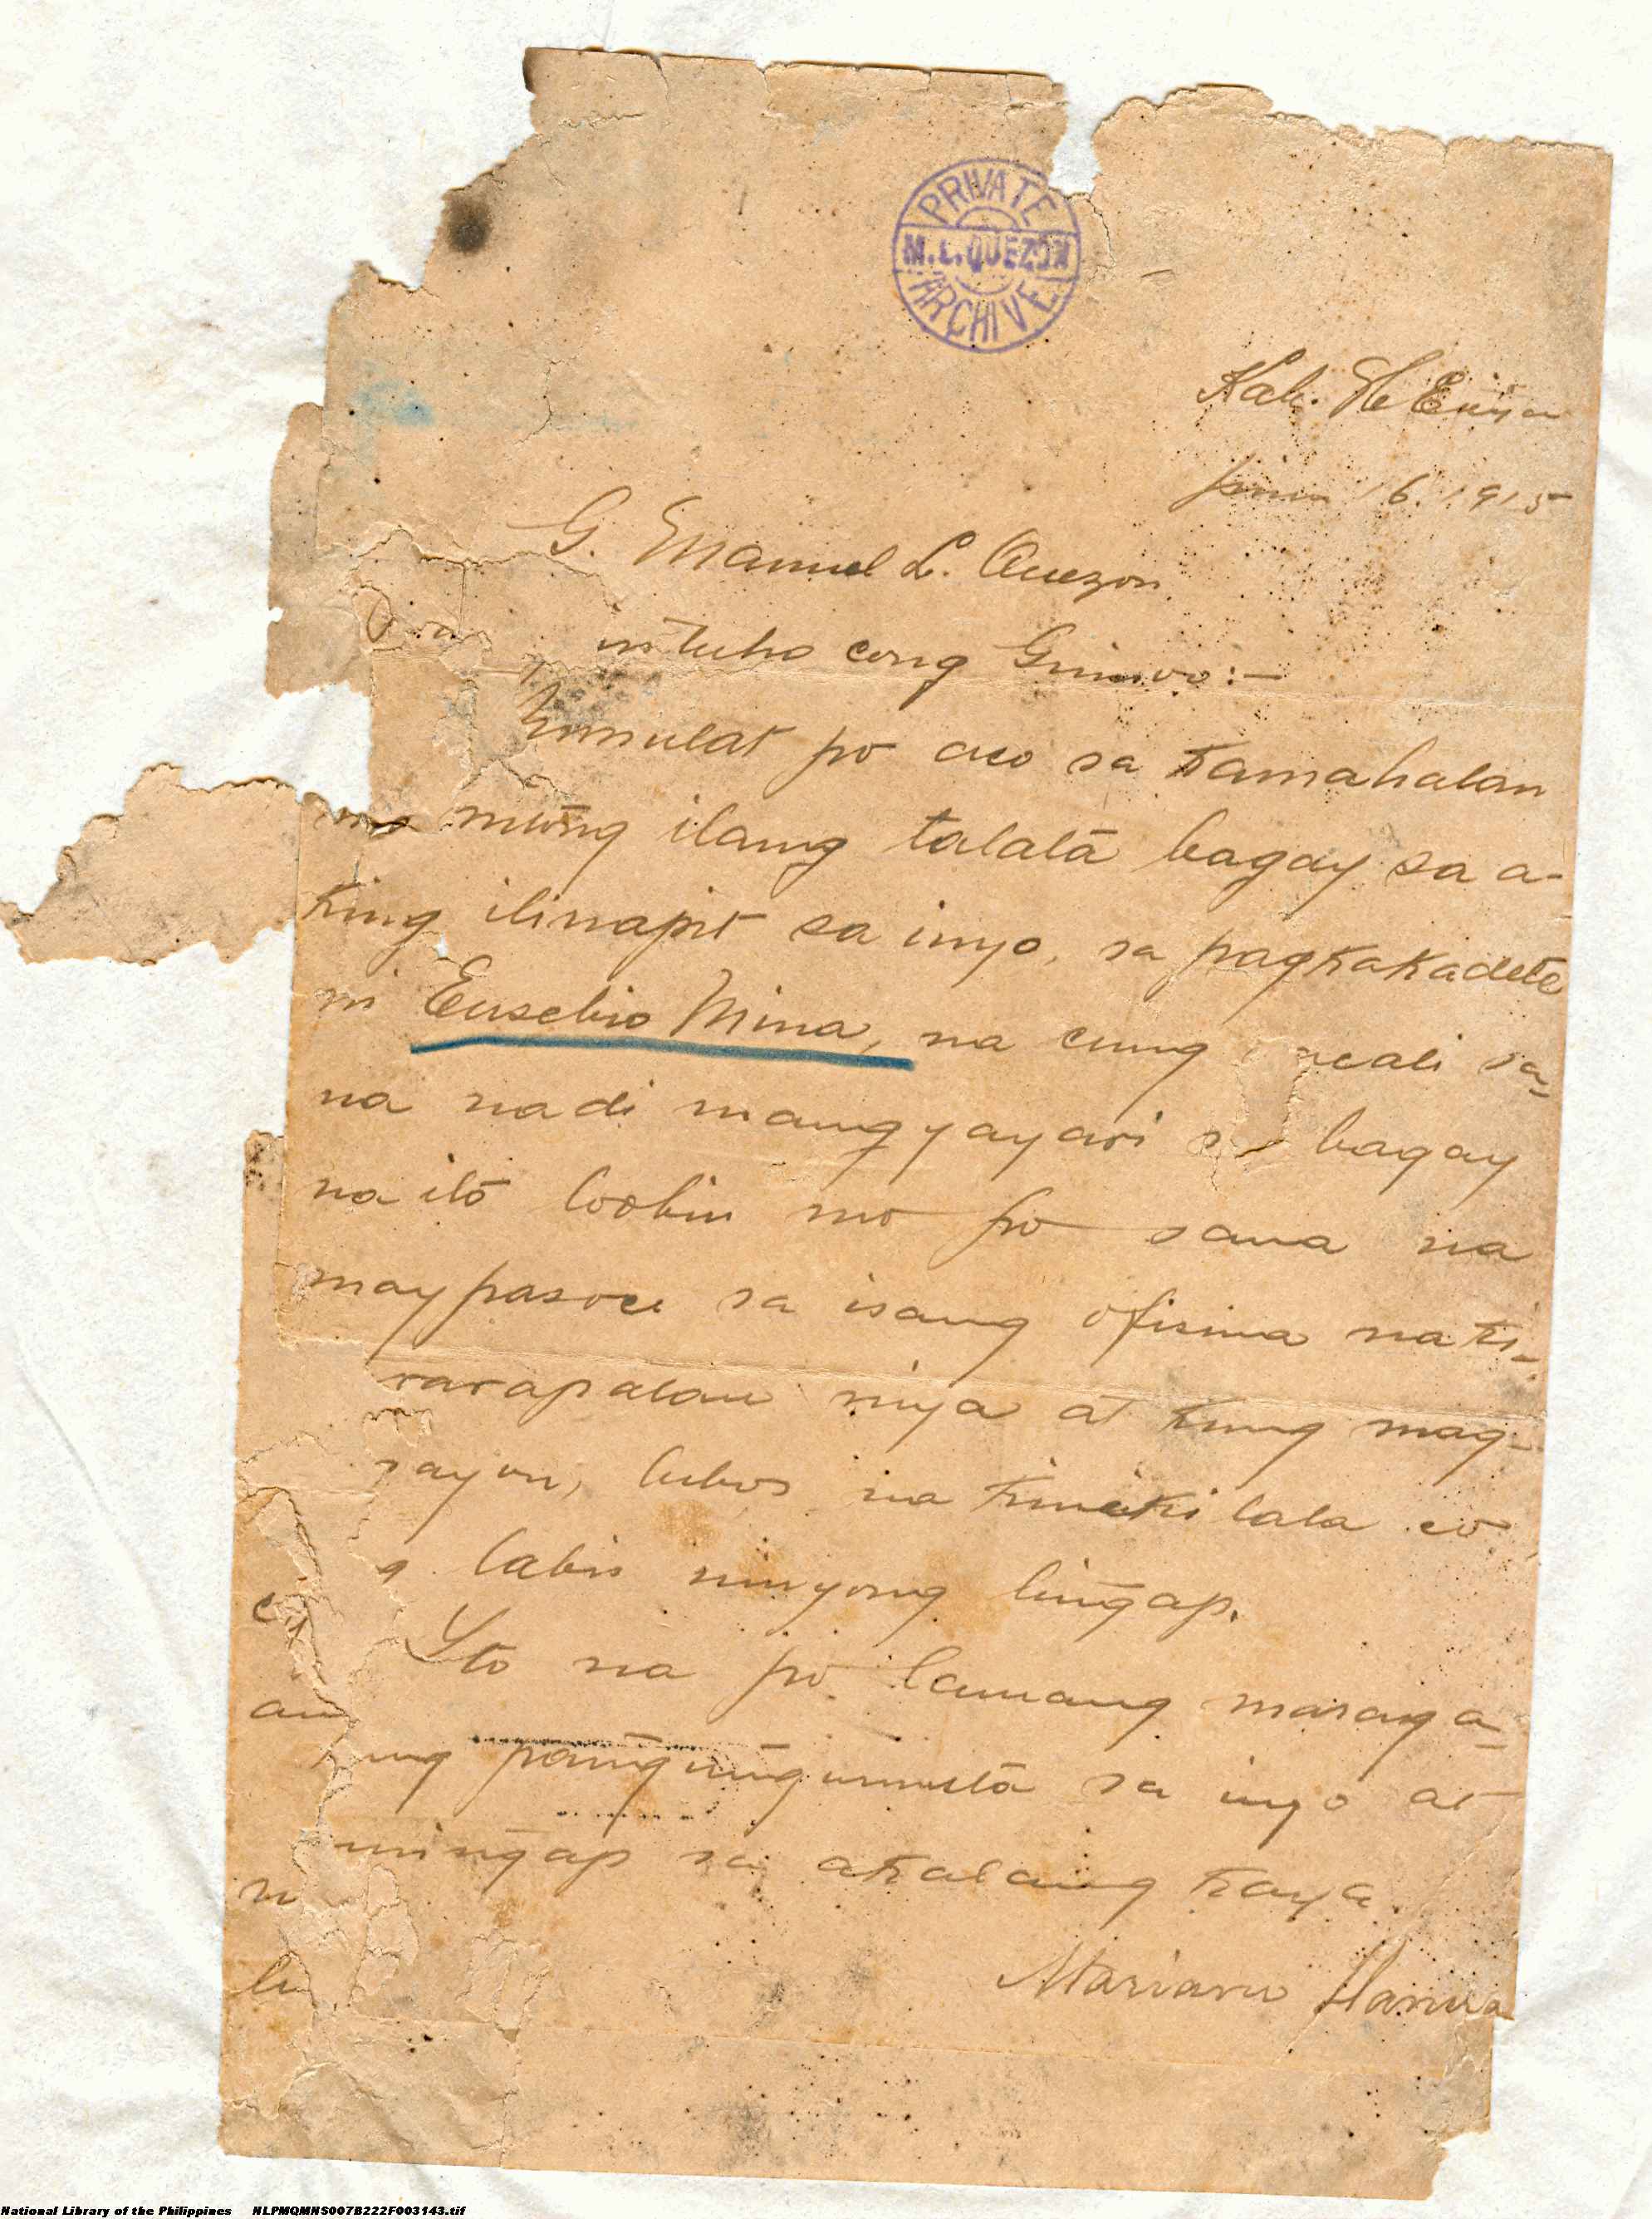 PRIVATE
M. L. QUEZON
ARCHIVE
Kab. N Ecija
Junio 16. 1915
G. Manuel L. Quezon
cong Guinoo:—
po aco sa kamahalan
mo mūng ilang talatā bagay sa a-
king ilinapit sa inyo, sa pagkakadete
ni Eusebio Mina, na cung sa-
na nadi mangyayari bagay
na itō loobin mo po sana na
maypasoc sa isang ofisina na ki-
rarapatan niya at kung mag-
cayon, lubos na kinikilala co
labis ninyong lin̄gap.
Yto na po lamang masaga-
nang pan̄gun̄gumustā sa inyo at
sa akalaing kaya.
Mariano
National Library of the Philippines NLPMQMNS007B222F003143.tif